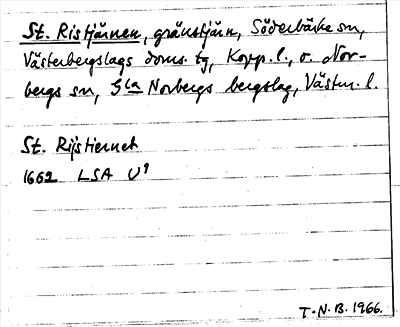 St. Ristjärnen, gränstjärn, Söderbärke sn,
Västerbergslags doms. tg, Kopp. l., o. Nor-
bergs sn, Gla Norbergs bergslag, Västm. l.
St. Rijstiernet
1662 LSA U9
T.N.B. 1966.